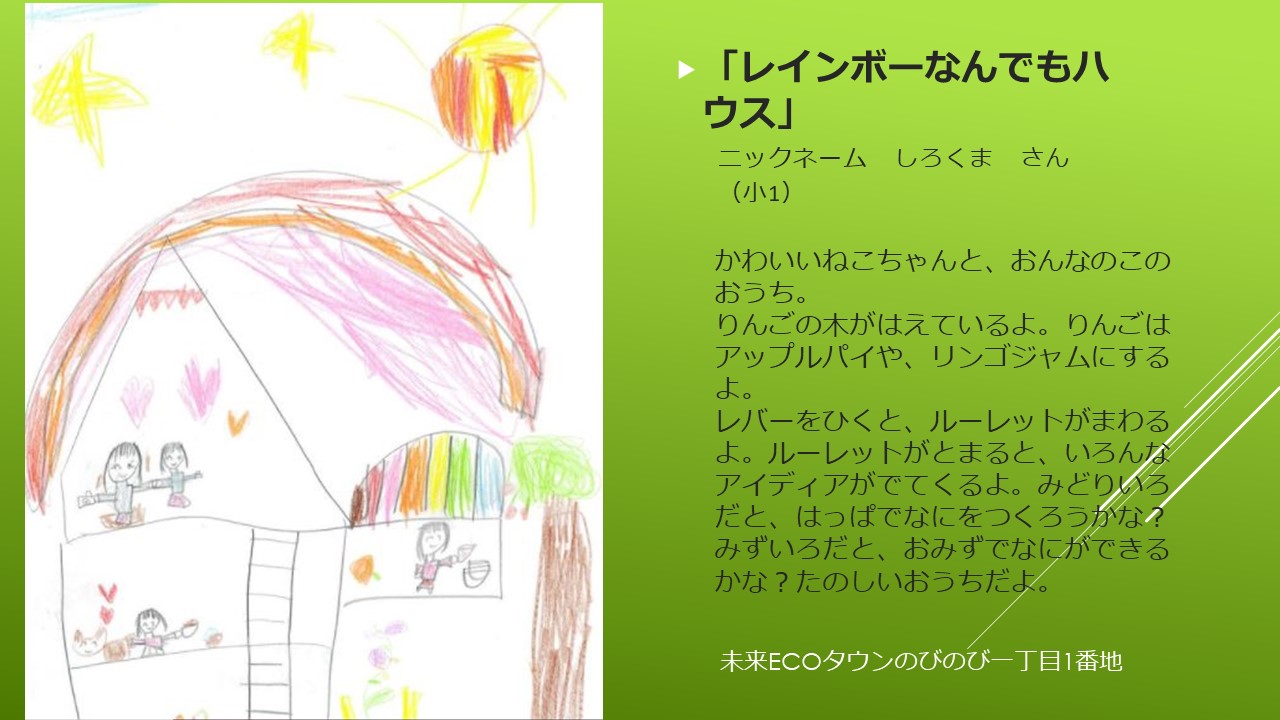 「レインボーなんでもハ
ウス」
ニックネーム　しろくま　さん
（小1）
かわいいねこちゃんと、おんなのこの
おうち。
りんごの木がはえているよ。りんごは
アップルパイや、リンゴジャムにする
よ。
レバーをひくと、ルーレットがまわる
よ。ルーレットがとまると、いろんな
アイディアがでてくるよ。みどりいろ
だと、はっぱでなにをつくろうかな？
みずいろだと、おみずでなにができる
かな？たのしいおうちだよ。
未来ECOタウンのびのび一丁目1番地